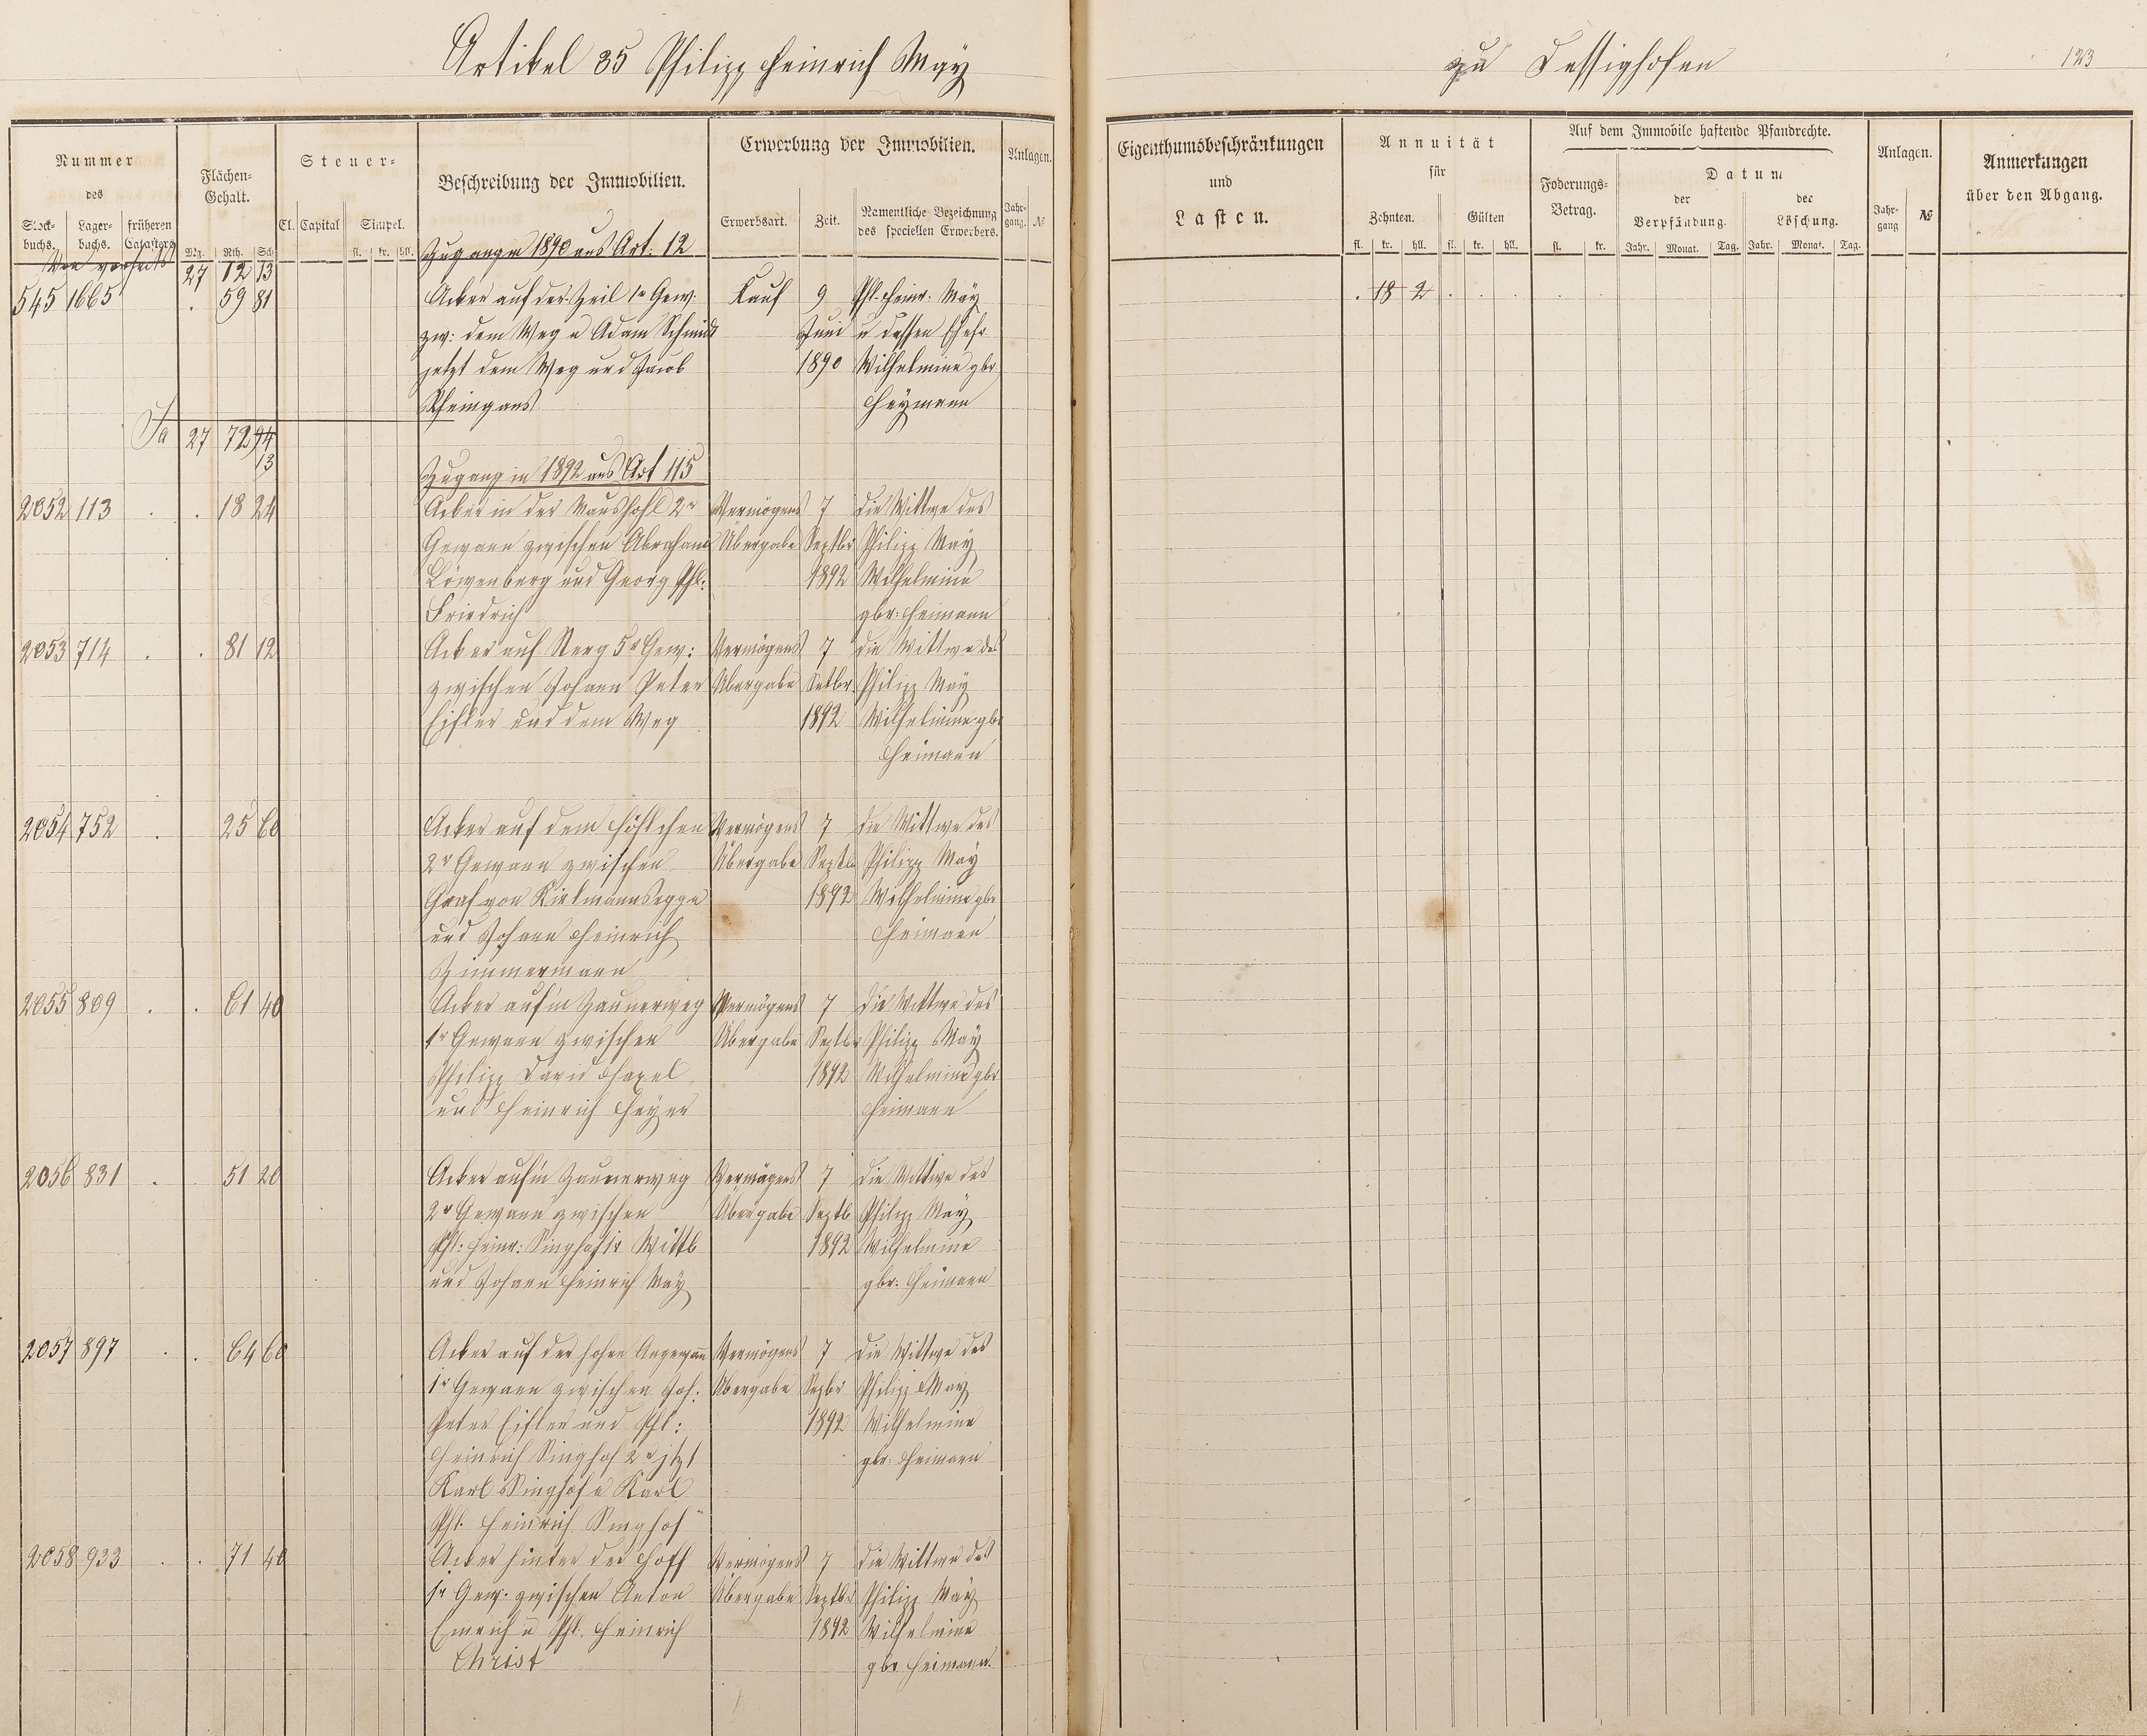 Artikel 35 Philipp Heinrich May
zu Dessighofen
123
Nummer
des
Stock-
buchs.
Lager-
buchs.
früheren
Catasters
Flächen-
Gehalt.
Mg. Rth. Sch
Steuer-
Cl. Capital Simpel.
fl. kr. hll.
Beschreibung der Immobilien.
Erwerbung der Immobilien.
Erwerbsart. Zeit. Namentliche Bezeichnung
des speciellen Erwerbers.
Anlagen.
Jahr-
gang. №
Eigenthumsbeschränkungen
und
Lasten.
Annuität
für
Zehnten. Gülten
fl. kr. hll. fl. kr. hll.
Auf dem Immobile haftende Pfandrechte.
Foderungs-
Betrag.
fl. kr.
Datum
der
Verpfändung.
der
Löschung.
Jahr. Monat. Tag. Jahr. Monat. Tag.
Anlagen.
Jahr-
gang №
Anmerkungen
über den Abgang.
Zugang in 1890 aus Art. 12
Von vorseits 27 12 13
545 1665 . 59 81 Acker auf der Zeil 1r Gew. Kauf 9 Phl. Heinr. May . 18 2 . . . . .
zw: dem Weg u Adam Schmidt Juni u dessen Ehefr.
jetzt dem Weg und Jacob 1890 Wilhelmine gbr
Rheingans Heymann
Sa 27 72 94
13
Zugang in 1892 aus Art 115
2052 113 . . 18 24 Acker in der Maushohl 2r Vermögens 7 die Wittwe des
Gewann zwischen Abraham Übergabe Septbr Philipp May
Löwenberg und Georg Phl: 1892 Wilhelmine
Friedrich gbr: Heimann
2053 714 . . 81 12 Acker auf 5r Gew: Vermögens 7 die Wittwe des
zwischen Johann Peter Übergabe Setbr Philipp May
Eisler und dem Weg 1892 Wilhelmine gbr
Heimann
2054 752 . 25 60 Acker auf dem Höhlchen Vermögens 7 die Wittwe des
2r Gewann zwischen Übergabe Septbr Philipp May
Graf von Kielmannsegge 1892 Wilhelmine gbr
und Johann Heinrich Heimann
Zimmermann
2055 809 . . 61 40 Acker auf'm Zaunerweg Vermögens 7 die Wittwe des
1r Gewann zwischen Übergabe Septbr Philipp May
Philipp David 1892 Wilhelmine gbr
und Heinrich Heyer Heimann
2056 831 . 51 20 Acker auf'm Zaunerweg Vermögens 7 die Wittwe des
2r Gewann zwischen Übergabe Septb Philipp May
Phl: Heinr: Singhof 1r Wittb 1892 Wilhelmine
und Johann Heinrich May gbr: Heimann
2057 897 . . 64 60 Acker auf der hohen Angewann Vermögens 7 die Wittwe des
1r Gewann zwischen Joh. Übergabe Sepbr Philipp May
Peter Eisler und Phl: 1892 Wilhelmine
Heinrich Singhof 2r jtzt gbr: Heimann
Karl Singhof u Karl
Phl. Heinrich Singhof
2058 933 . . 71 40 Acker hinter der Hoff Vermögens 7 die Wittwe des
1r Gew. zwischen Anton Übergabe Septbr Philipp May
Emrich u Phl. Heinrich 1892 Wilhelmine
Christ gbr Heimann.